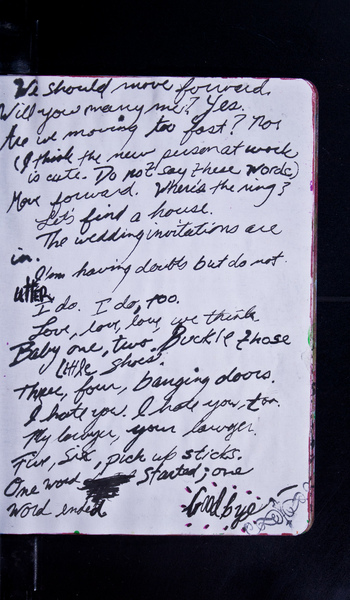 We should move forward.
Will you marry me? Yes.
Are we moving too fast? No.
(I think the new person at work
is cute. Do not say these words)
Move forward. Where's the ring?
Let's find a house.
The wedding invitations are
in.
I'm having doubts but do not
utter.
I do. I do, too.
Love, love, love, we think.
Baby one, two, Buckle those
little shoes.
Three, four, banging doors.
I hate you. I hate you, too.
My lawyer, your lawyer.
Five, Six, pick up sticks.
One word started; one
word ended
Goodbye